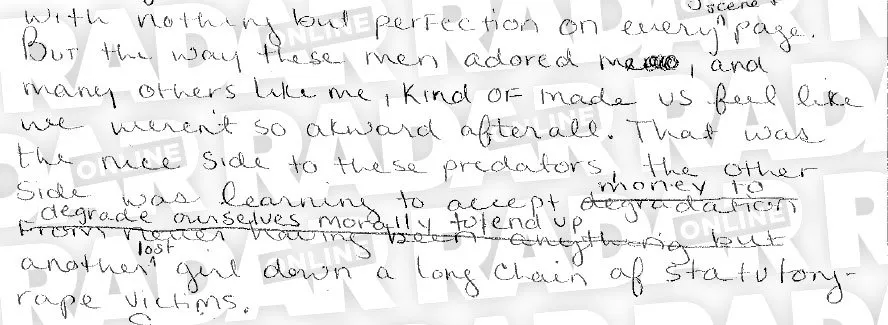 scene +
with nothing but perfection on every ^ page.
But the way these men adored me, and
many others like me, kind of made us feel like
we weren't so akward after all. That was
the nice side to these predators, the other
money to
side was learning to accept degradation
degrade ourselves morally to end up
from never having been anything but
lost
another ^ girl down a long chain of statutory-
rape victims.
RADAR ONLINE